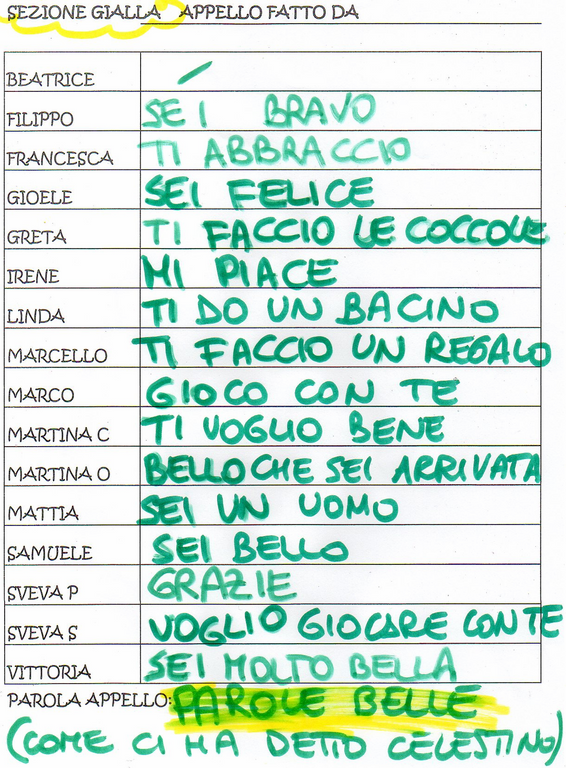 SEZIONE GIALLA APPELLO FATTO DA
BEATRICE /
FILIPPO SEI BRAVO
FRANCESCA TI ABBRACCIO
GIOELE SEI FELICE
GRETA TI FACCIO LE COCCOLE
IRENE MI PIACE
LINDA TI DO UN BACINO
MARCELLO TI FACCIO UN REGALO
MARCO GIOCO CON TE
MARTINA C TI VOGLIO BENE
MARTINA O BELLO CHE SEI ARRIVATA
MATTIA SEI UN UOMO
SAMUELE SEI BELLO
SVEVA P GRAZIE
SVEVA S VOGLIO GIOCARE CON TE
VITTORIA SEI MOLTO BELLA
PAROLA APPELLO: PAROLE BELLE
(COME CI HA DETTO CELESTINO)